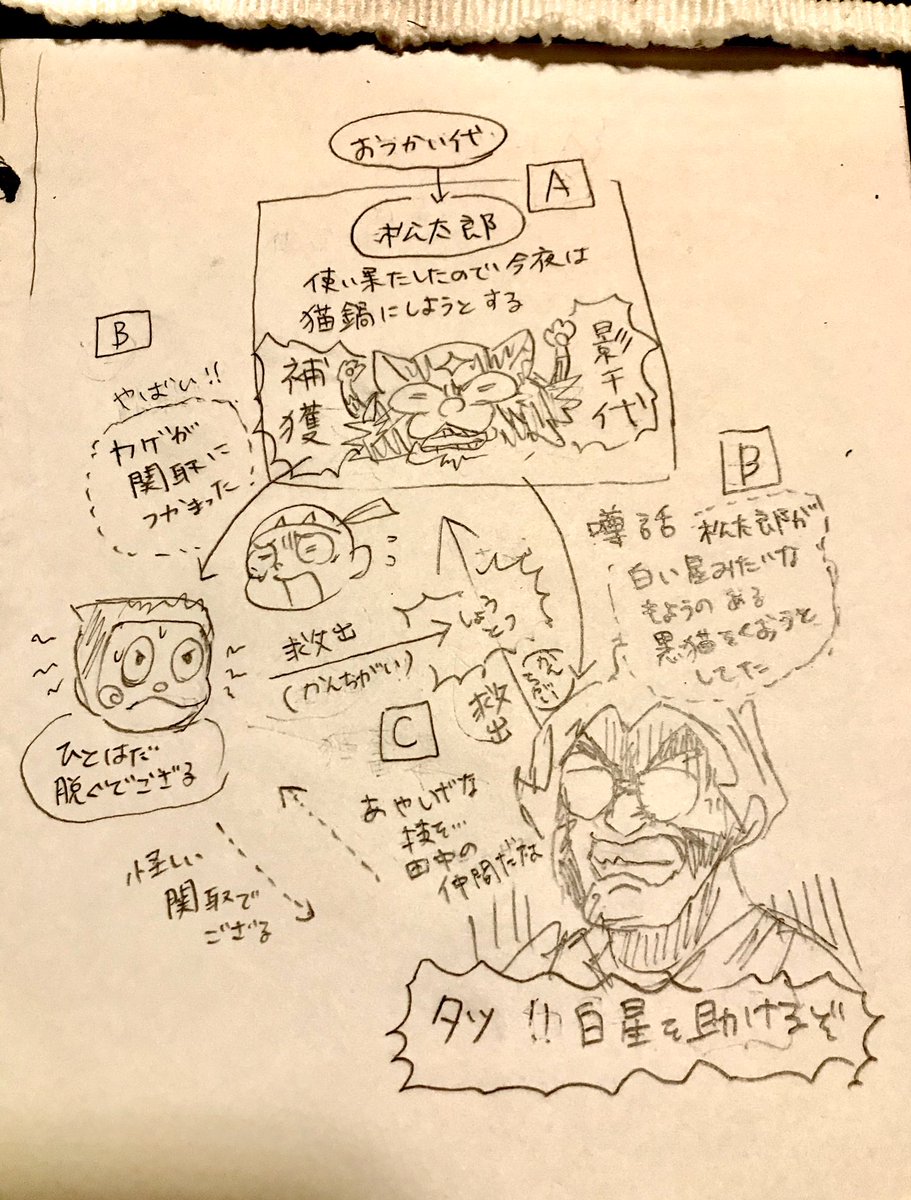 おつかい代
A
松太郎
使い果たしたので今夜は
猫鍋にしようとする
補獲
影千代
B
やばい!!
カゲが
関取に
つかまった!
B
噂話 松太郎が
白い星みたいな
もようのある
黒猫をくおうと
してた
救出
(かんちがい)
しょう
とつ
救出
C
ひとはだ
脱ぐでござる
あやしげな
技を…
田中の
仲間だな
怪しい
関取で
ござる
タツ!!白星を助けるぞ